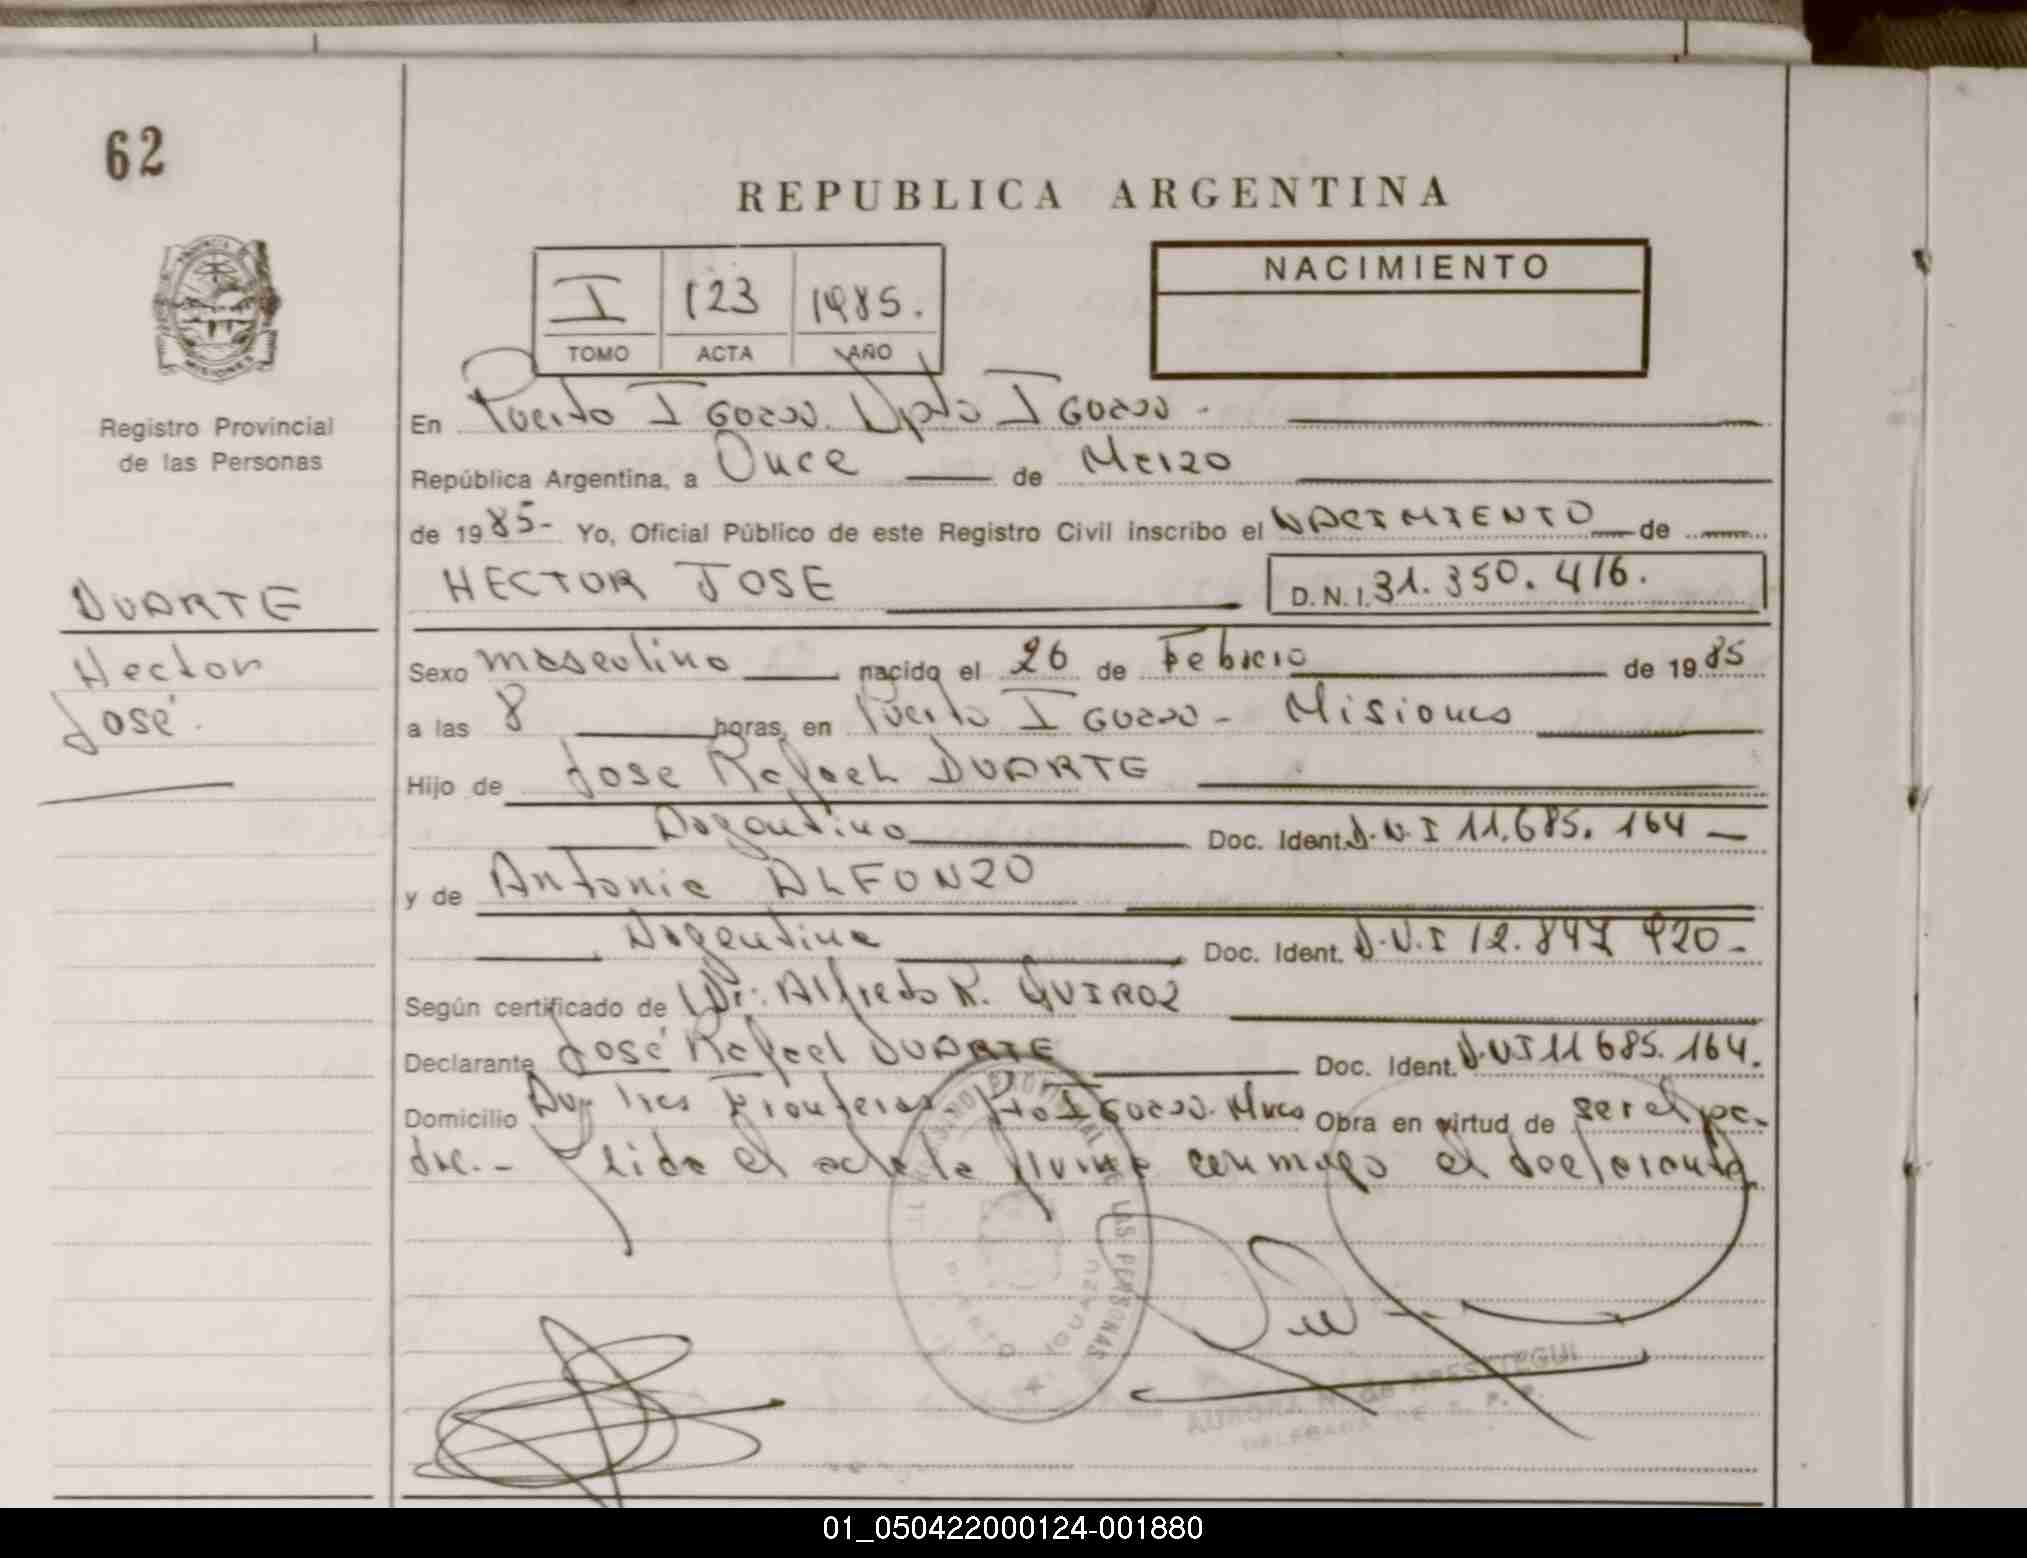 62
REPUBLICA ARGENTINA
NACIMIENTO
I 123 1985.
TOMO ACTA AÑO
MISIONES
Registro Provincial
de las Personas
DUARTE
Hector
José.
En Puerto Iguazu. Dpto Iguazu -
República Argentina, a Once de Marzo
de 1985- Yo, Oficial Público de este Registro Civil inscribo el NACIMIENTO de
HECTOR JOSE D.N.I. 31.350.416.
Sexo masculino nacido el 26 de Febrero de 1985
a las 8 horas, en Puerto Iguazu - Misiones
Hijo de Jose Rafael DUARTE
Argentino Doc. Ident. D.N.I 11.685.164
y de Antonia ALFONZO
Argentina Doc. Ident. D.N.I 12.847 920-
Según certificado de Dr. Alfredo R. QUIROZ
Declarante José Rafael DUARTE Doc. Ident. D.NI 11 685.164.
Domicilio Av. Tres Fronteras. Pto Iguazu. Mnes Obra en virtud de ser el pa-
dre.- Leida el acta la firma conmigo el declarante
REGISTRO PROVINCIAL DE LAS PERSONAS
PUERTO IGUAZU
AURORA de ARESTEGUI
DELEGADA DE R. P. P.
01_050422000124-001880